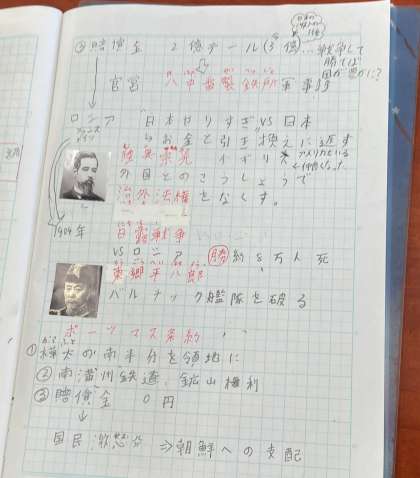 ③賠償金 2億テール(3億)…戦争して
勝てば
国が豊かに?
官営 八幡製鉄所 軍事
ロシア 「日本やりすぎ」VS日本
フランス
ドイツ
お金と引き換えに返す
陸奥宗光 イギリス
外国とのこうしょうで
治外法権をなくす。
1904年 日露戦争
VSロシア 勝 約8万人死
東郷平八郎
バルチック艦隊を破る
ポーツマス条約
からふと
①樺太の南半分を領地に
②南満州鉄道、鉱山権利
③賠償金 0円
↓
国民激怒 ⇒朝鮮への支配